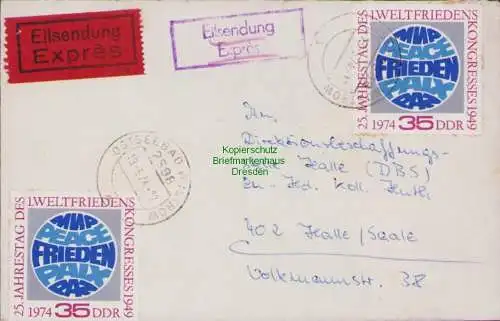 Eilsendung
Exprès
Eilsendung
Exprès
25. JAHRESTAG DES
1. WELTFRIEDENS
KONGRESSES 1949
МИР
PEACE
FRIEDEN
PAIX
PAZ
1974 35 DDR
OSTSEEBAD
2598
An
Kopierschutz
Briefmarkenhaus
Dresden
Halle (DBS)
402 Halle/Saale
Volkmannstr. 38
25. JAHRESTAG DES
1. WELTFRIEDENS
KONGRESSES 1949
МИР
PEACE
FRIEDEN
PAIX
PAZ
1974 35 DDR